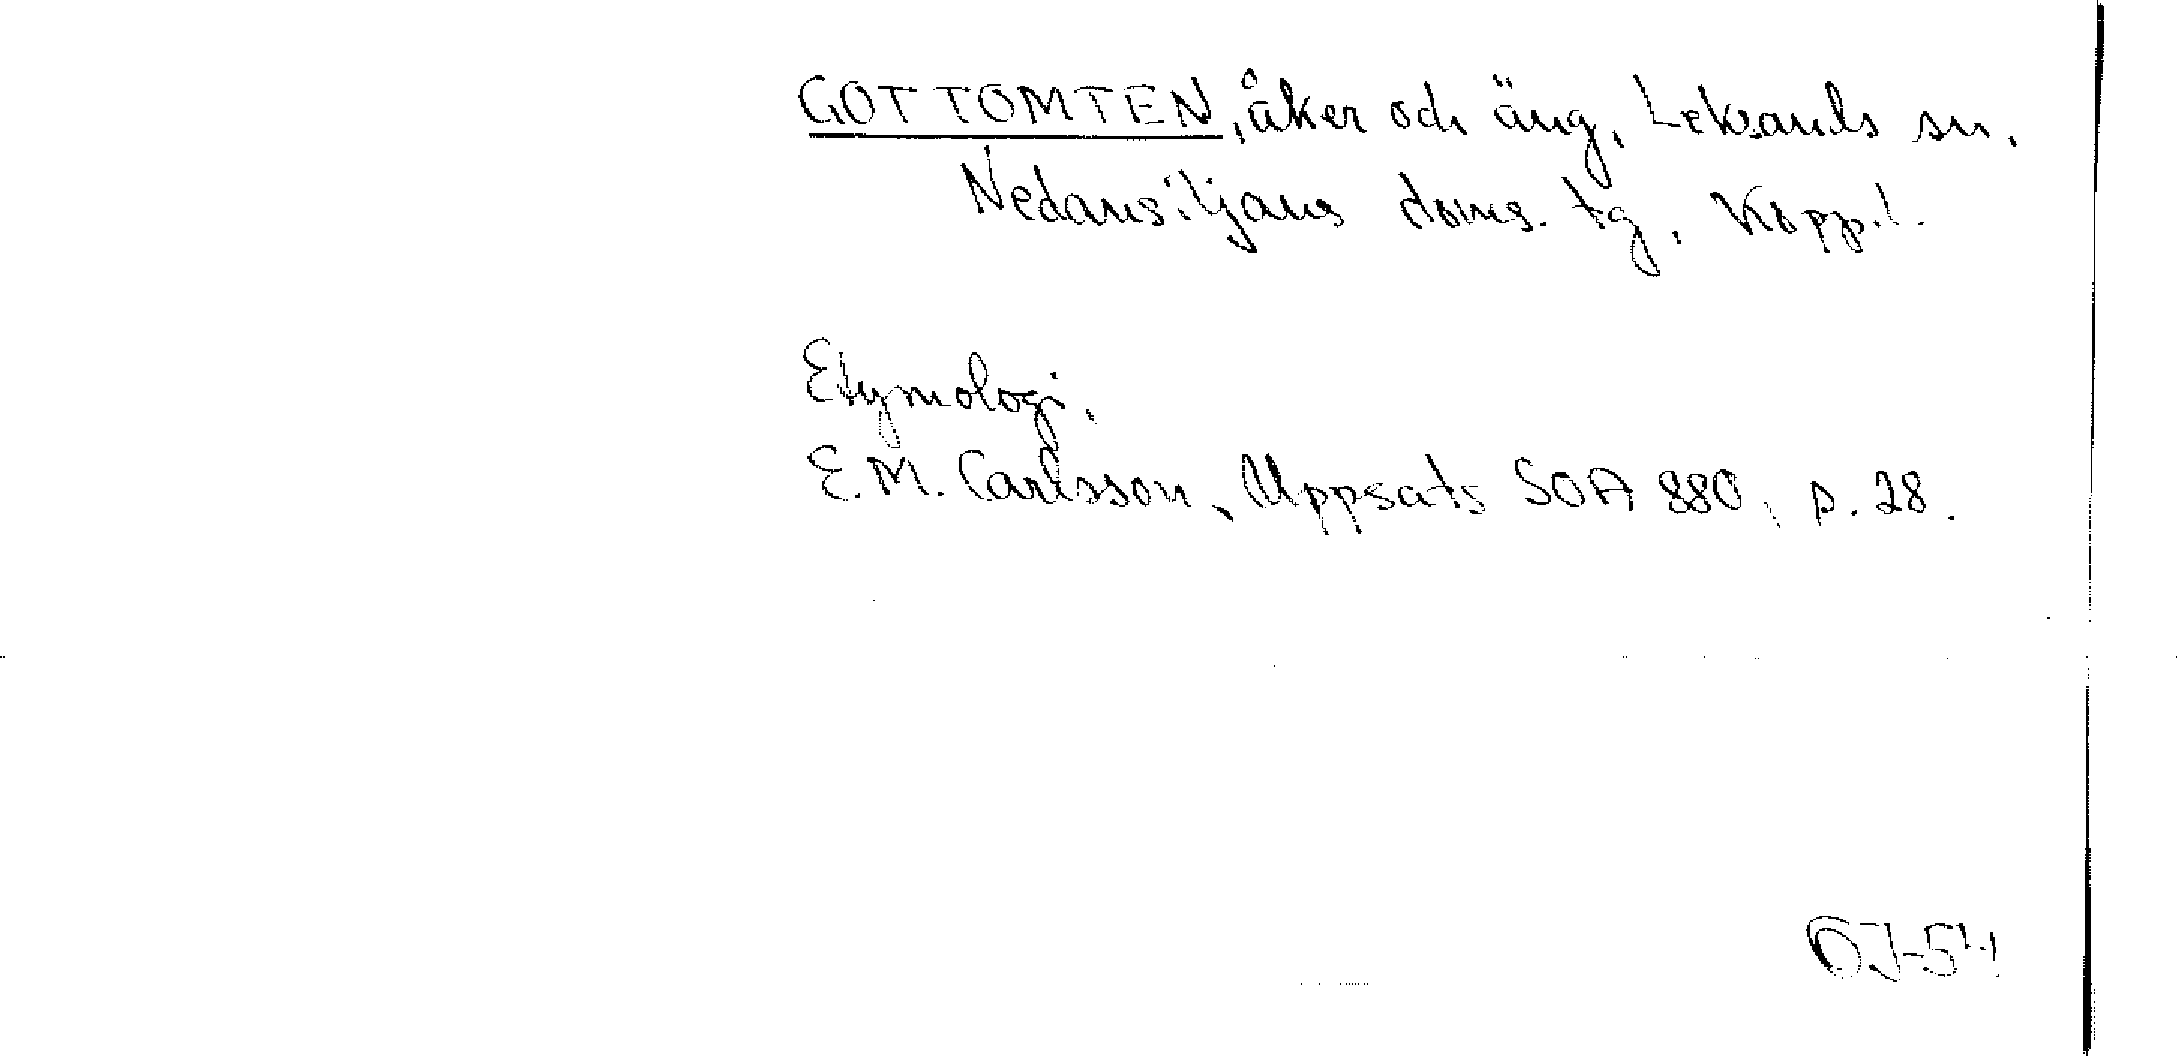 GOTTOMTEN, åker och äng, Leksands sn,
Nedansiljans doms. tg, Kopp.l.
Etymologi,
E.M. Carlsson, Uppsats SOA 880, s. 28.